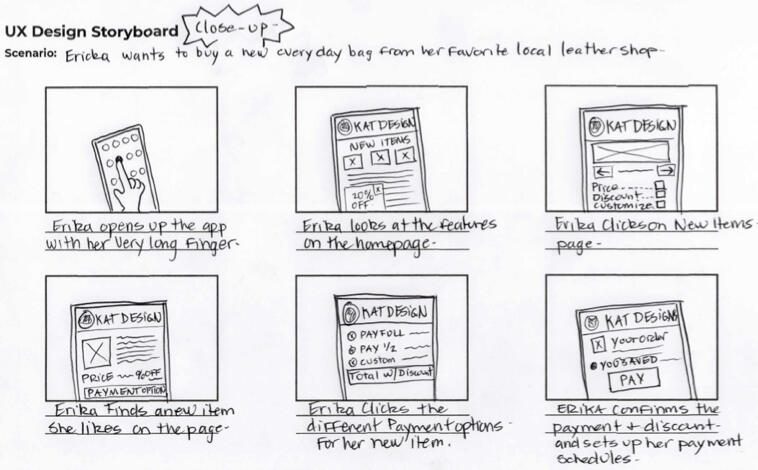 UX Design Storyboard Close-up-
Scenario: Ericka wants to buy a new everyday bag from her favorite local leather shop-
KAT DESIGN
NEW ITEMS
20%
OFF
X
KAT DESIGN
Price
Discount
Customize
Erika opens up the app
with her very long finger-
Erika looks at the features
on the homepage-
Erika Clicks on New Items
page-
KAT DESIGN
PRICE %OFF
PAYMENT OPTION
KAT DESIGN
PAY FULL
PAY 1/2
Custom
Total w/Discount
KAT DESIGNS
Your order
YOU SAVED
PAY
Erika Finds a new item
She likes on the page-
Erika Clicks the
different Payment options
for her new item.
ERIKA Confirms the
payment + discount
and sets up her payment
schedules-